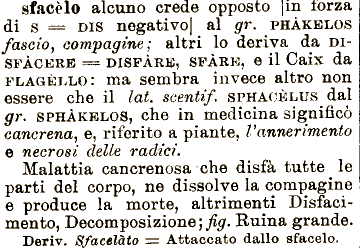 sfacèlo alcuno crede opposto |in forza
di S = DIS negativo| al gr. PHÀKELOS
fascio, compagine; altri lo deriva da DI-
SFÀCERE = DISFÀRE, SFÀRE, e il Caix da
FLAGÈLLO: ma sembra invece altro non
essere che il lat. scentif. SPHACÈLUS dal
gr. SPHÀKELOS, che in medicina significò
cancrena, e, riferito a piante, l'annerimento
e necrosi delle radici.
Malattia cancrenosa che disfà tutte le
parti del corpo, ne dissolve la compagine
e produce la morte, altrimenti Disfaci-
mento, Decomposizione; fig. Ruina grande.
Deriv. Sfacelàto = Attaccato dallo sfacelo.